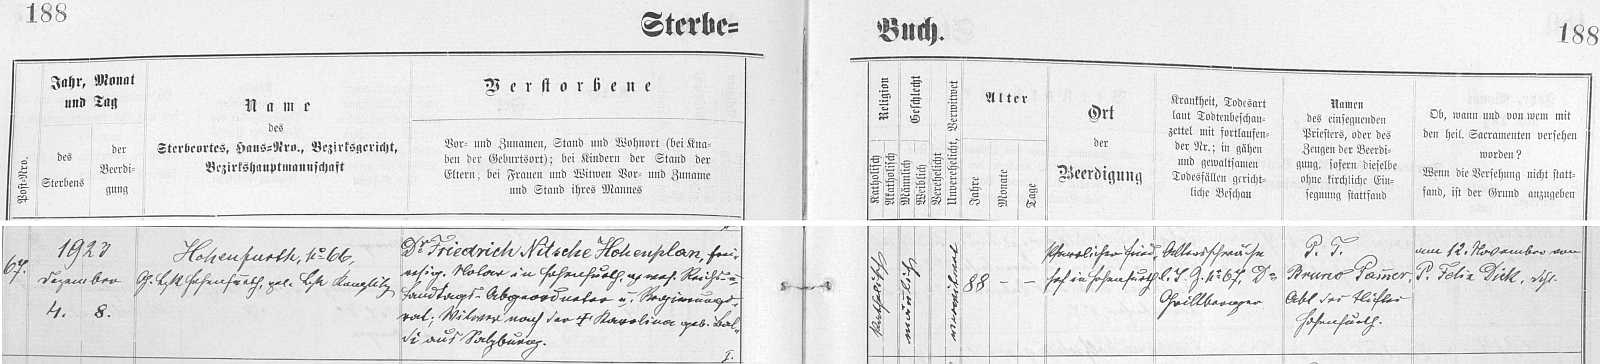 188
Sterbe=
Buch.
188
Post-Nro.
Jahr, Monat
und Tag
des
Sterbens
der
Beerdi-
gung
Name
des
Sterbeortes, Haus-Nro., Bezirksgericht,
Bezirkshauptmannschaft
Verstorbene
Vor- und Zunamen, Stand und Wohnort (bei Kna-
ben der Geburtsort); bei Kindern der Stand der
Eltern; bei Frauen und Witwen Vor- und Zuname
und Stand ihres Mannes
Religion
Katholisch
Akatholisch
Geschlecht
Männlich
Weiblich
Verehelicht
Unverehelicht, Verwitwet
Alter
Jahre
Monate
Tage
Ort
der
Beerdigung
Krankheit, Todesart
laut Todtenbeschau-
zettel mit fortlaufen-
der Nr.; in gähen
und gewaltsamen
Todesfällen gericht-
liche Beschau
Namen
des einsegnenden
Priesters, oder des
Zeugen der Beerdi-
gung, sofern dieselbe
ohne kirchliche Ein-
segnung stattfand
Ob, wann und von wem mit
den heil. Sacramenten versehen
worden?
Wenn die Versehung nicht statt-
fand, ist der Grund anzugeben
67.
1923
Dezember
4. 8.
Hohenfurth, No 66,
Hohenfurth, pol. Kaplitz
Dr Friedrich Nitsche Hohenplan,
Notar in Hohenfurth, gewes. Reichs- u.
Landtags-Abgeordneter u. Regierungs-
rat; Witwer nach der † Karolina geb. Bal-
di aus Salzburg.
katholisch
männlich
verwitwet
88 - -
Pfarrlicher Fried-
hof in Hohenfurth
Altersschwäche
No 67, Dr
P. T.
Bruno Pamer,
Abt des Stiftes
Hohenfurth.
am 12. November von
P. Felix Dick,